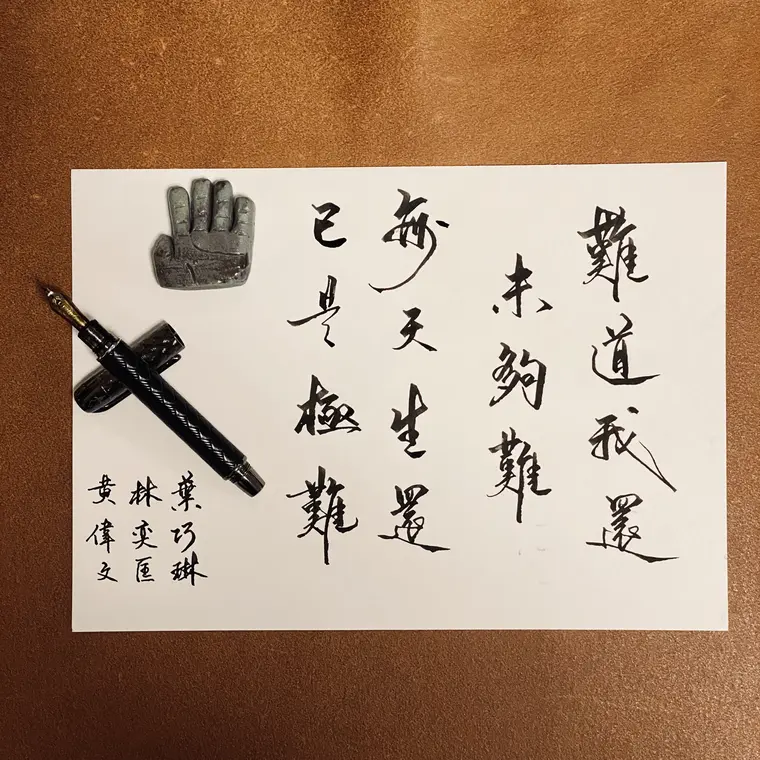 難道我還
未夠難
每天生還
已是極難
葉巧琳
林奕匡
黃偉文